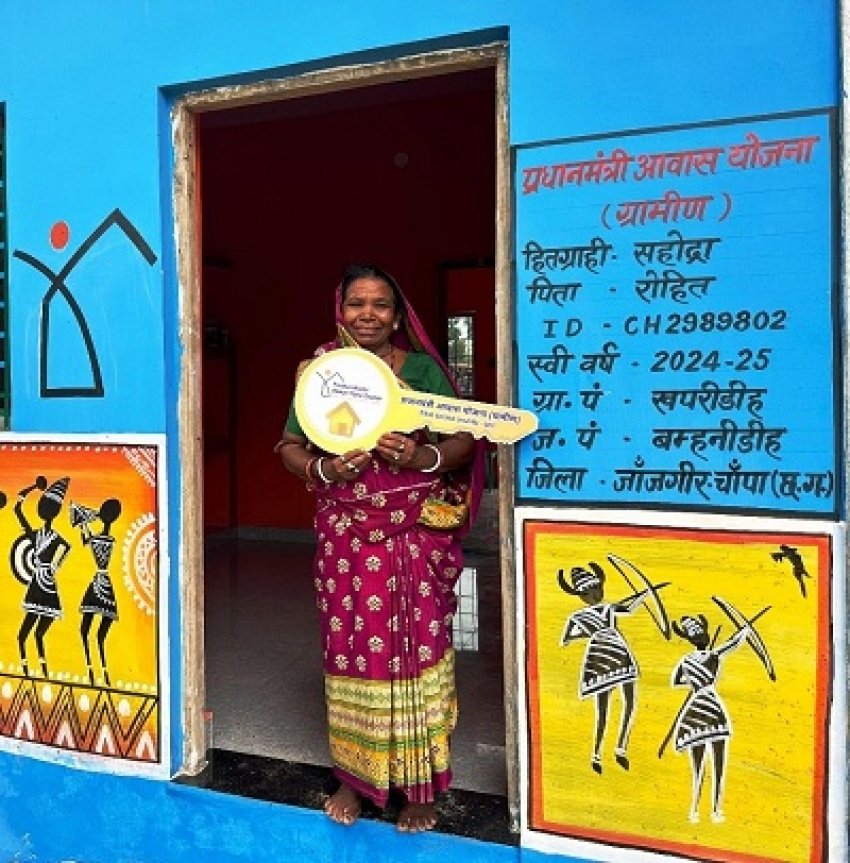 प्रधानमंत्री आवास योजना
(ग्रामीण)
हितग्राही - सहोद्रा
पिता - रोहित
ID - CH2989802
स्वी वर्ष - 2024-25
ग्रा. पं - खपरीडीह
ज. पं - बम्हनीडीह
जिला - जाँजगीर-चाँपा (छ.ग.)
प्रधानमंत्री आवास योजना (ग्रामीण)